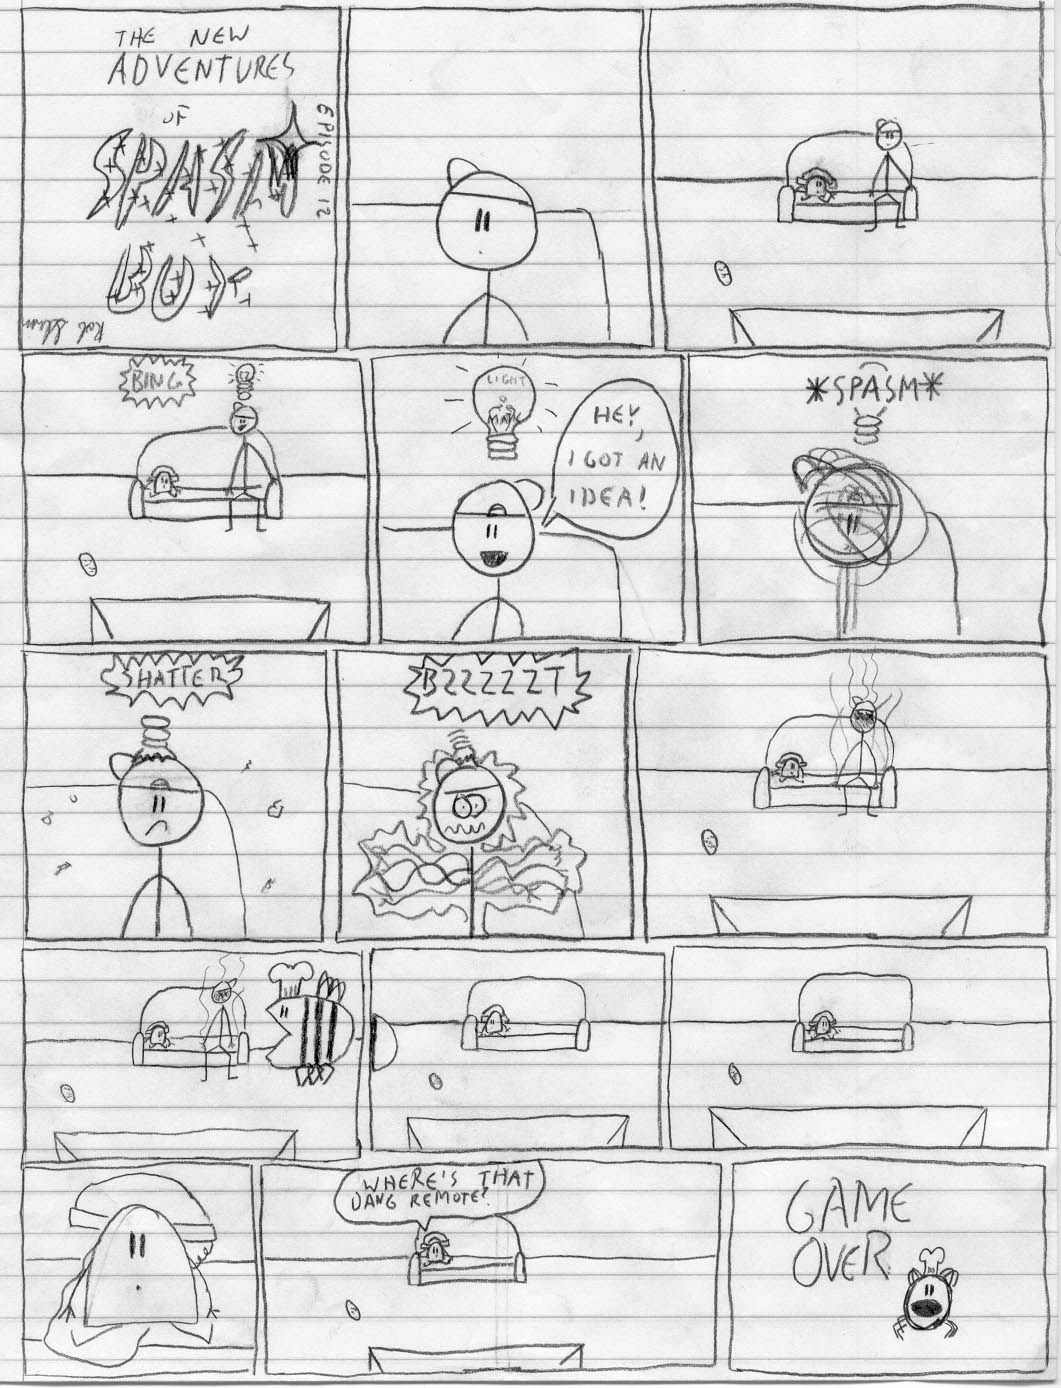 THE NEW
ADVENTURES
OF
SPASM
BOY
EPISODE 12
BING
LIGHT
HEY,
I GOT AN
IDEA!
*SPASM*
SHATTER
BZZZZZT
WHERE'S THAT
DANG REMOTE?
GAME
OVER